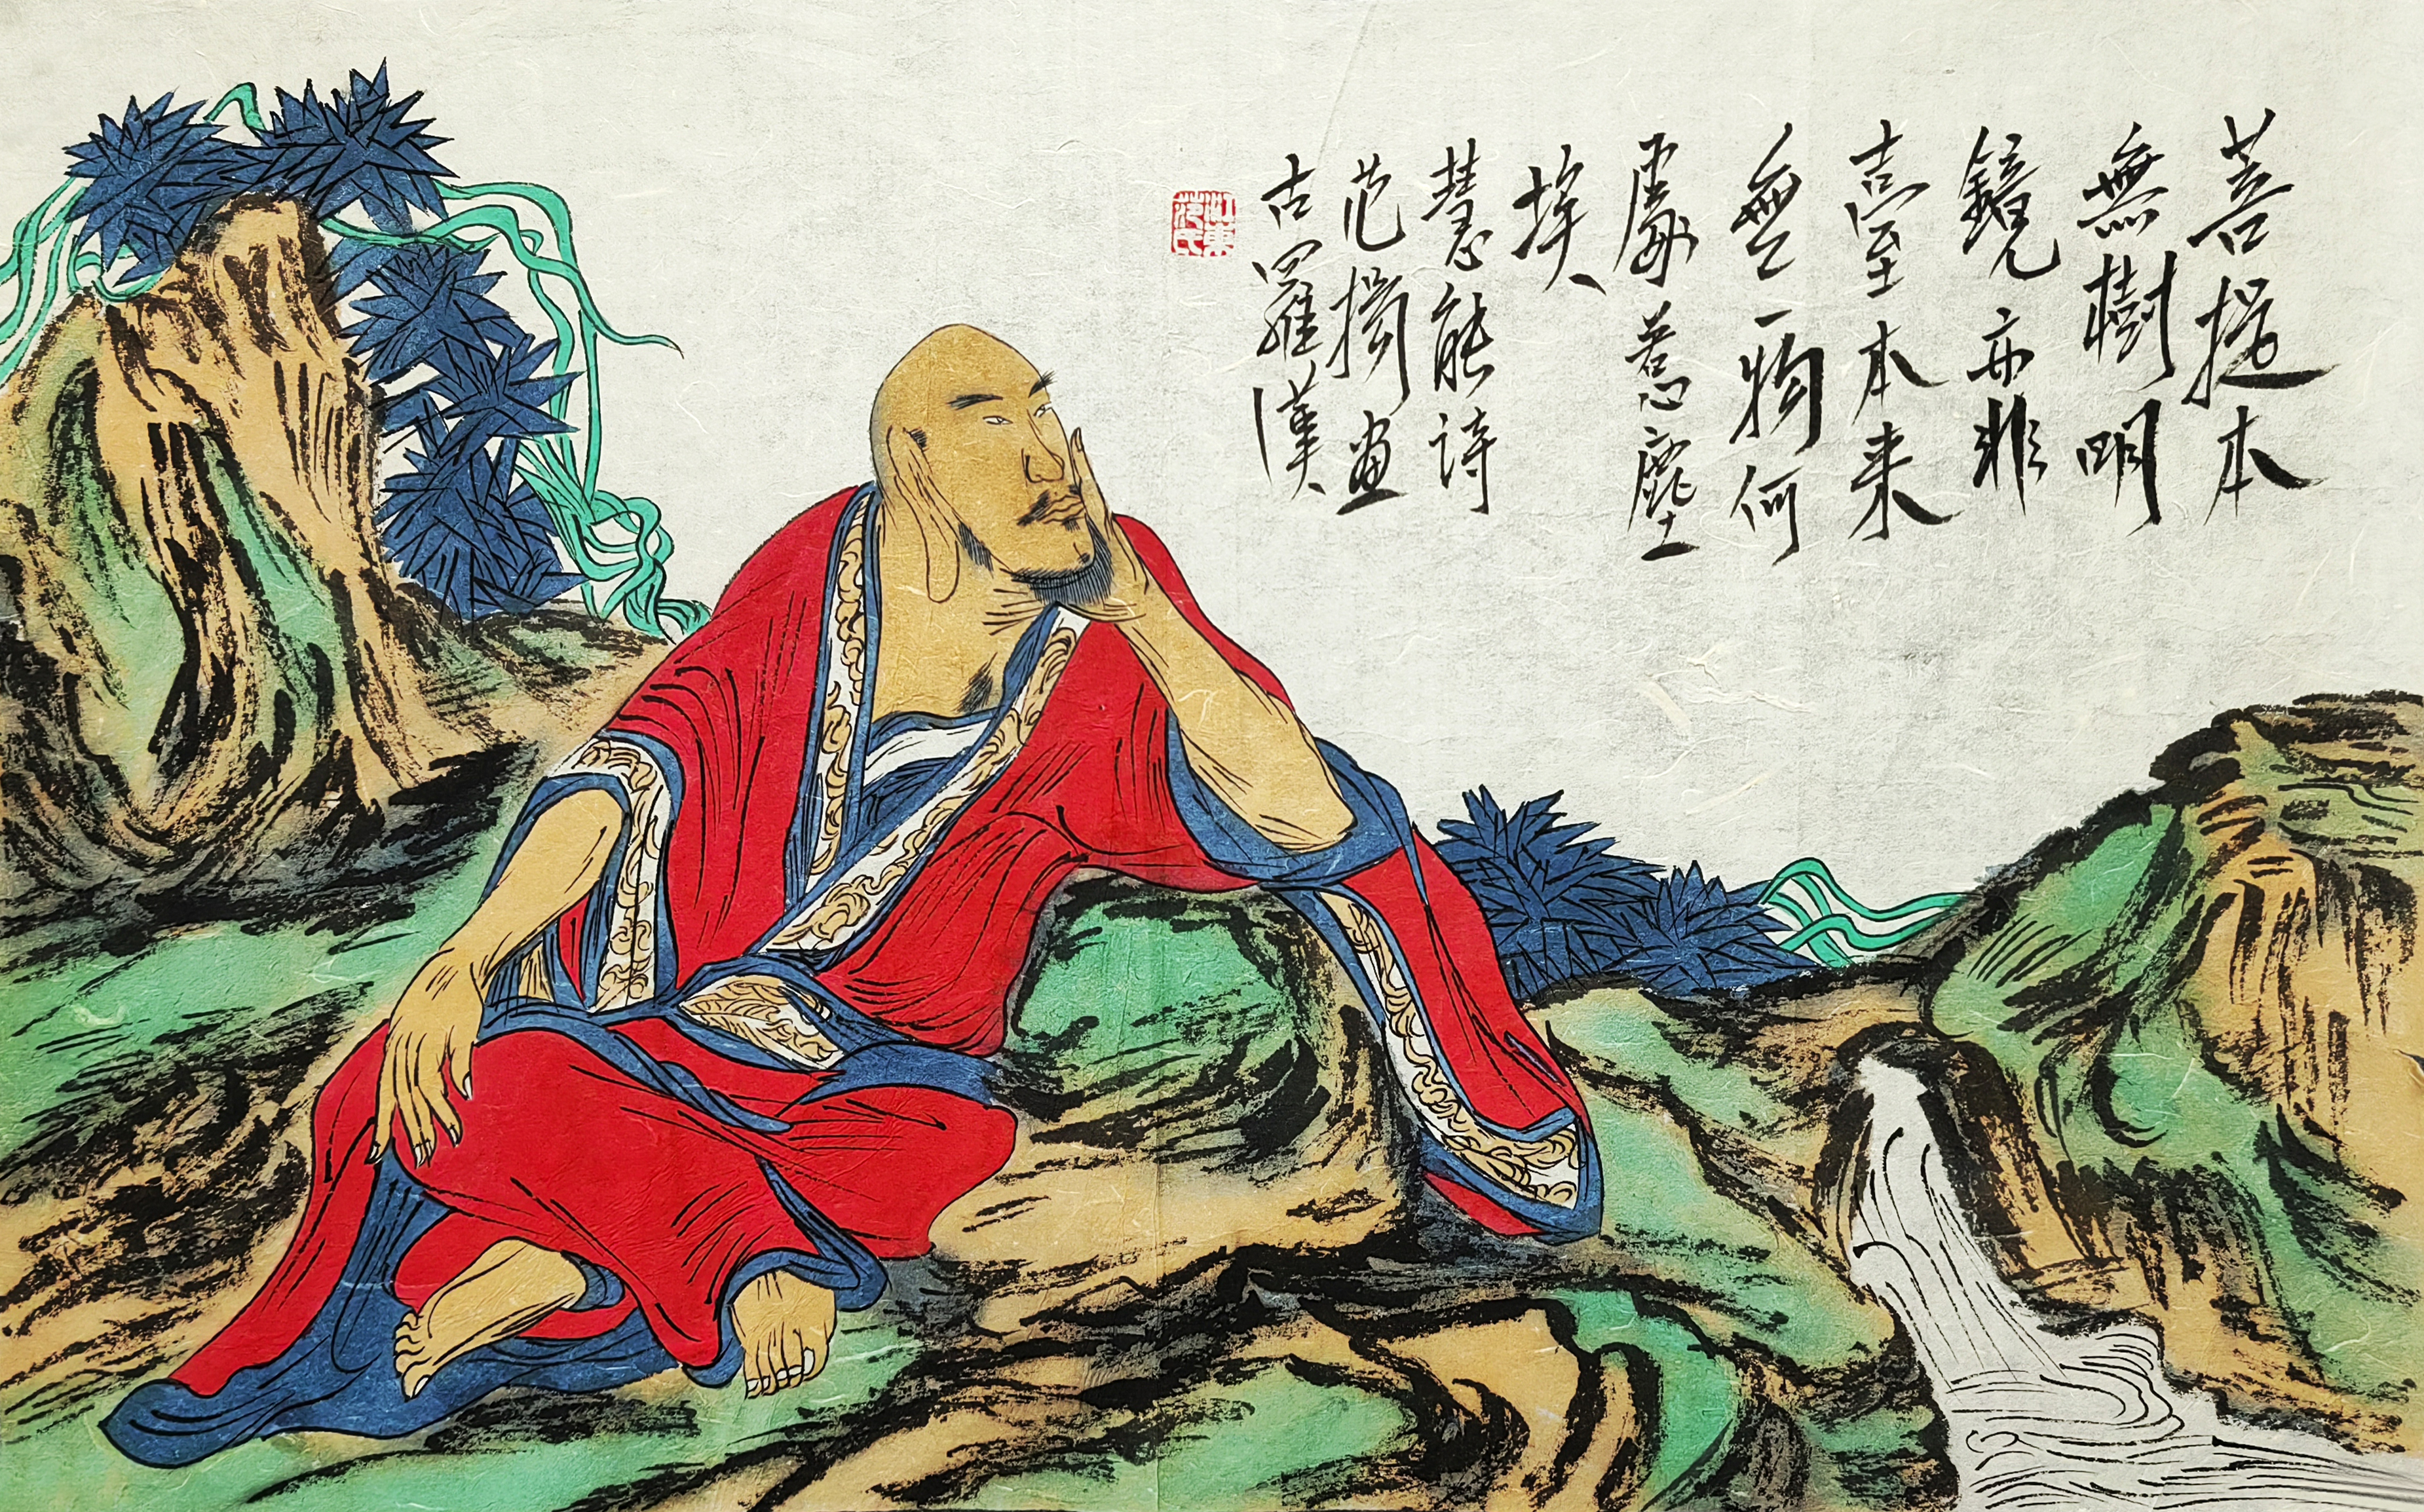 菩提本
無樹明
鏡亦非
臺本来
無一物何
處惹塵
埃
慧能詩
范畫
古羅漢
山東
范氏